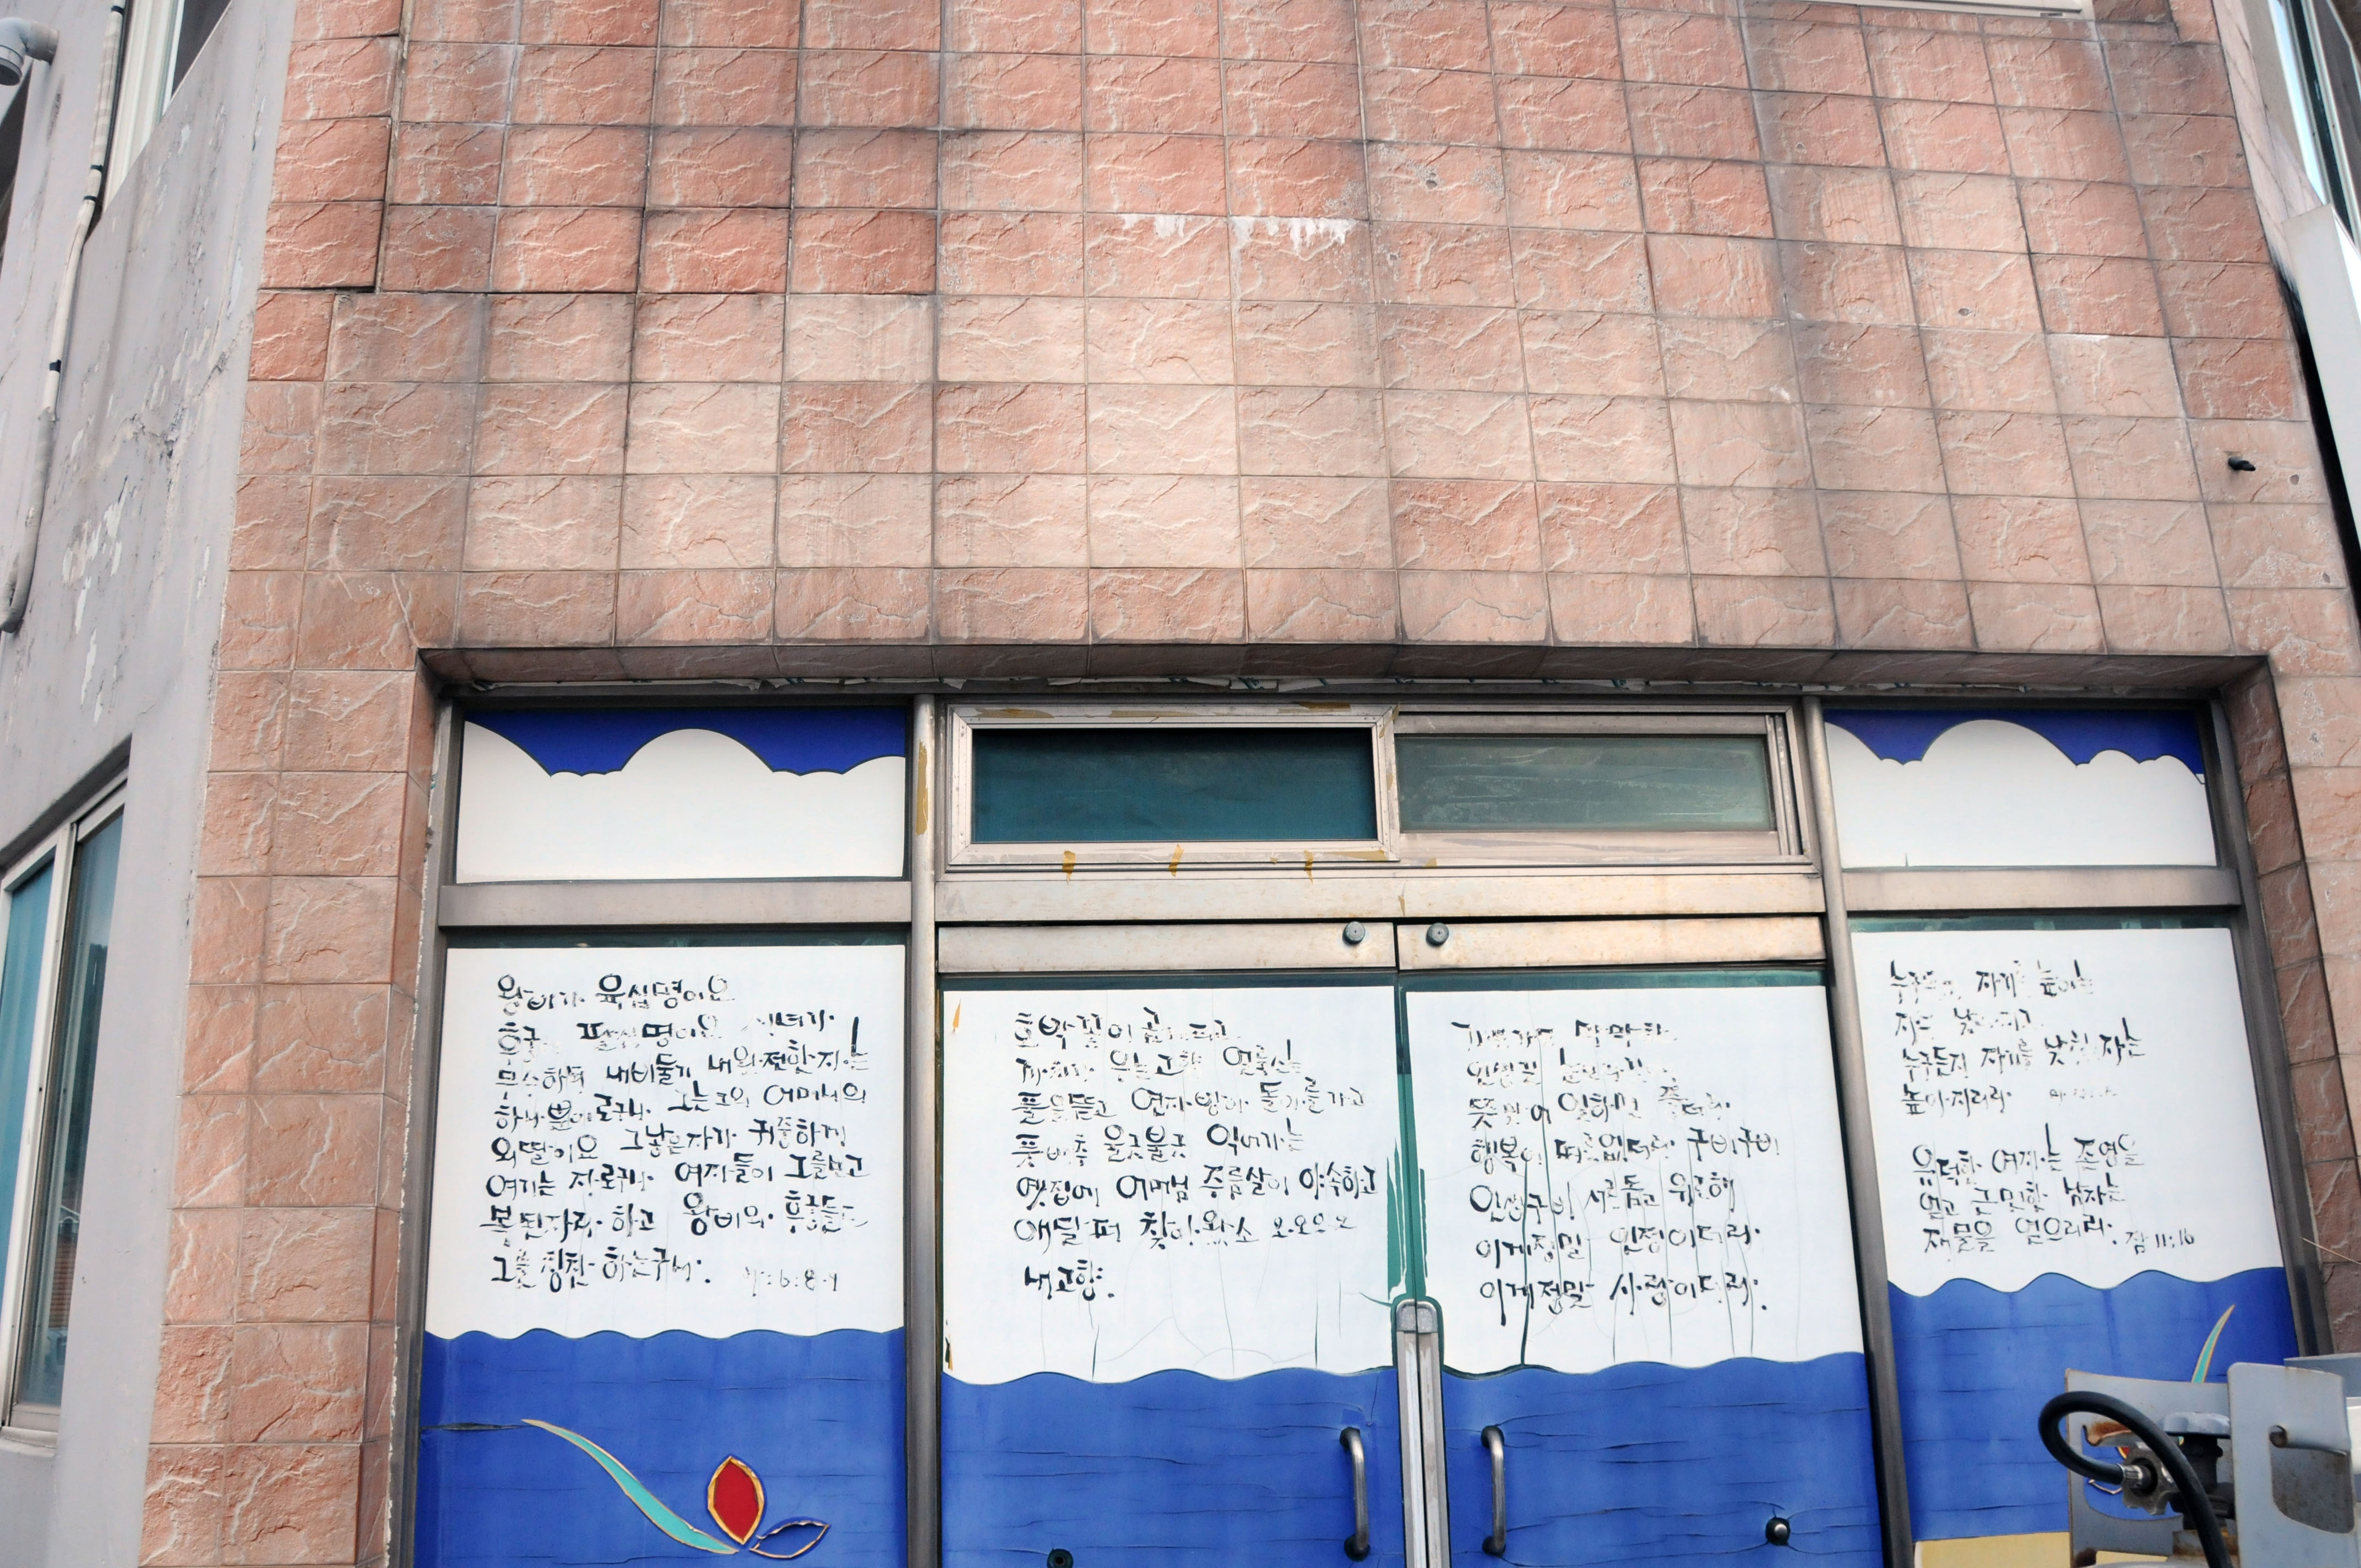 왕비가 육십명이요
후궁이 팔십명이요 시녀가
무수하되 내비둘기 내 완전한 자는
하나뿐이로구나 그는 그의 어머니의
외딸이요 그 낳은자가 귀중하게
여기는 자로구나 여자들이 그를 보고
복된자라 하고 왕비와 후궁들도
그를 칭찬 하는구나.
호박꽃이 곱
푸는 고향 얼룩소는
풀을 뜯고 연자방아 돌
풋배추 울긋불긋 익어가는
옛집에 어머님 주름살이 야속하고
애달퍼 찾아왔소
내고향.
막막한
인생길
뜻 일하면
행복이 따로없더라 구비구비
인생구비 서로돕고 위로해
이게정말 인정이더라.
이게정말 사랑이더라.
자기를 높이는
자는 낮아지고
누구든지 자기를 낮추는 자는
높아지리라
유덕한 여자는 존영을
얻고 근면한 남자는
재물을 얻으리라. 잠 11:16